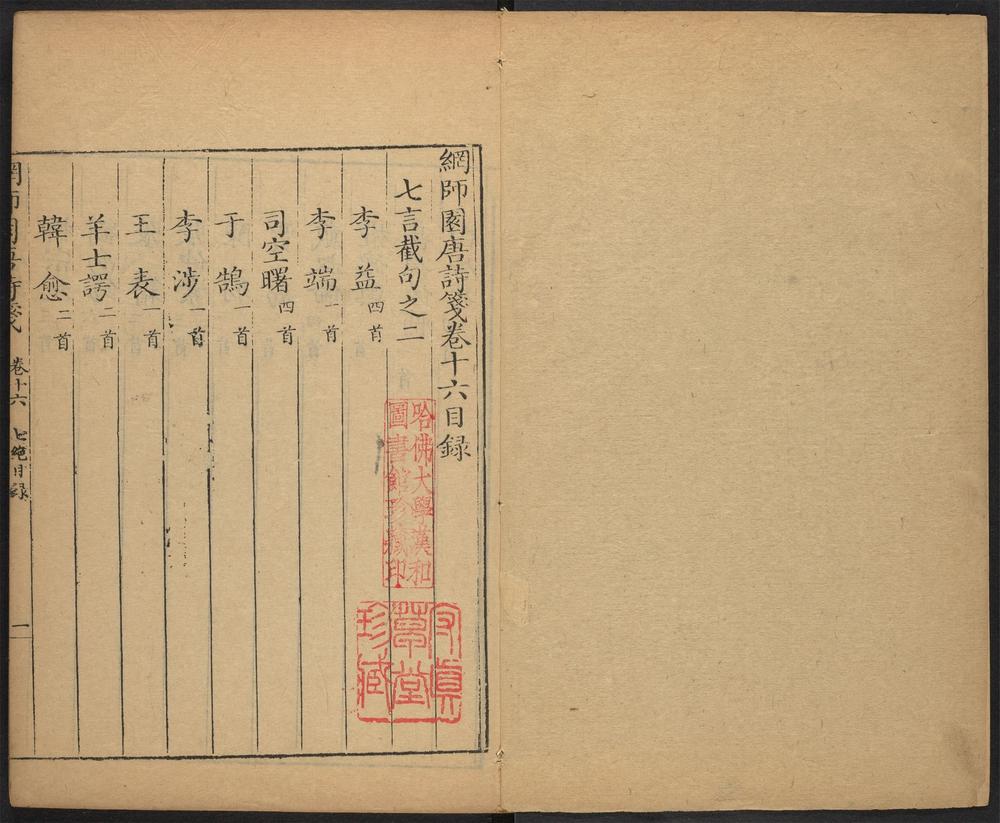 網師園唐詩箋卷十六目錄
七言截句之二
李益四首
李端一首
司空曙四首
于鵠一首
李涉一首
王表一首
羊士諤二首
韓愈二首
網師園唐詩箋 卷十六 七絕目錄 一
哈佛大學漢和
圖書館珍藏印
草堂
珍藏